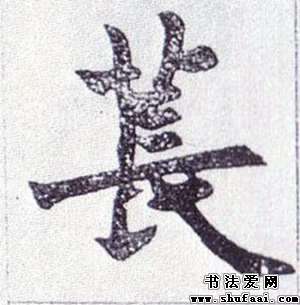 萇
书法爱网
www.shufaai.com